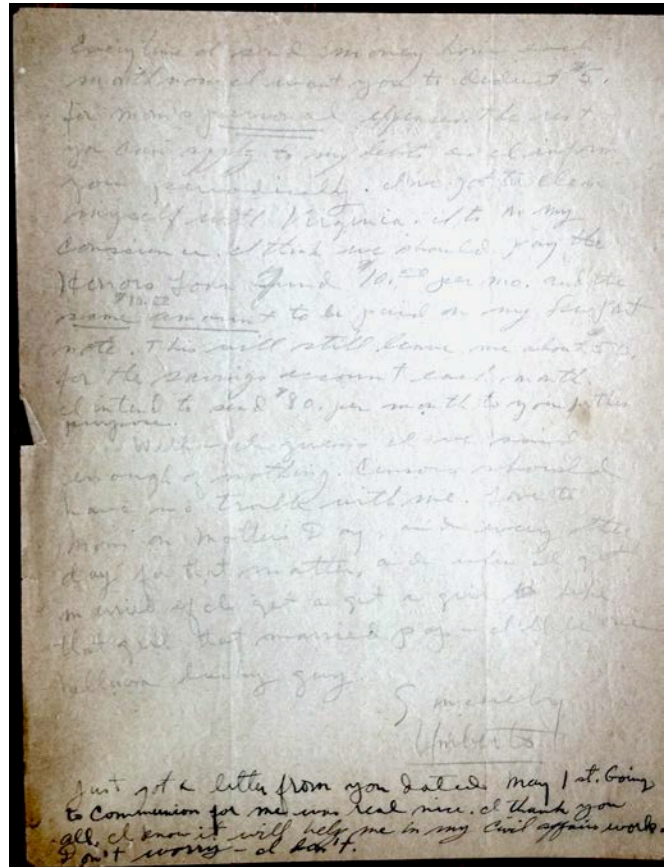 Everytime I send money home each
month now I want you to deduct $5.
for mom's personal expenses. The rest
you can apply to my debts as I inform
you periodically. I've got to clear
myself with Virginia. It's on my
conscience. I think we should pay the
Honors Loan Fund $10.00 per mo. and the
same amount $10.00 to be paid on my
note. This will still leave me about $50.
for the savings account each month.
I intend to send $80. per month to you for this
purpose.
With I guess I've said
enough of nothing. Censors should
have no trouble with me. Love to
Mom on Mother's Day, and every other
day for that matter, and when I get
married if I get a get a girl like
that girl that married pop - I'll be one
lucky guy.
Sincerely
Umberto
Just got a letter from you dated May 1st. Going
to Communion for me was real nice. I thank you
all. I know it will help me in my civil affairs work.
Don't worry - I don't.